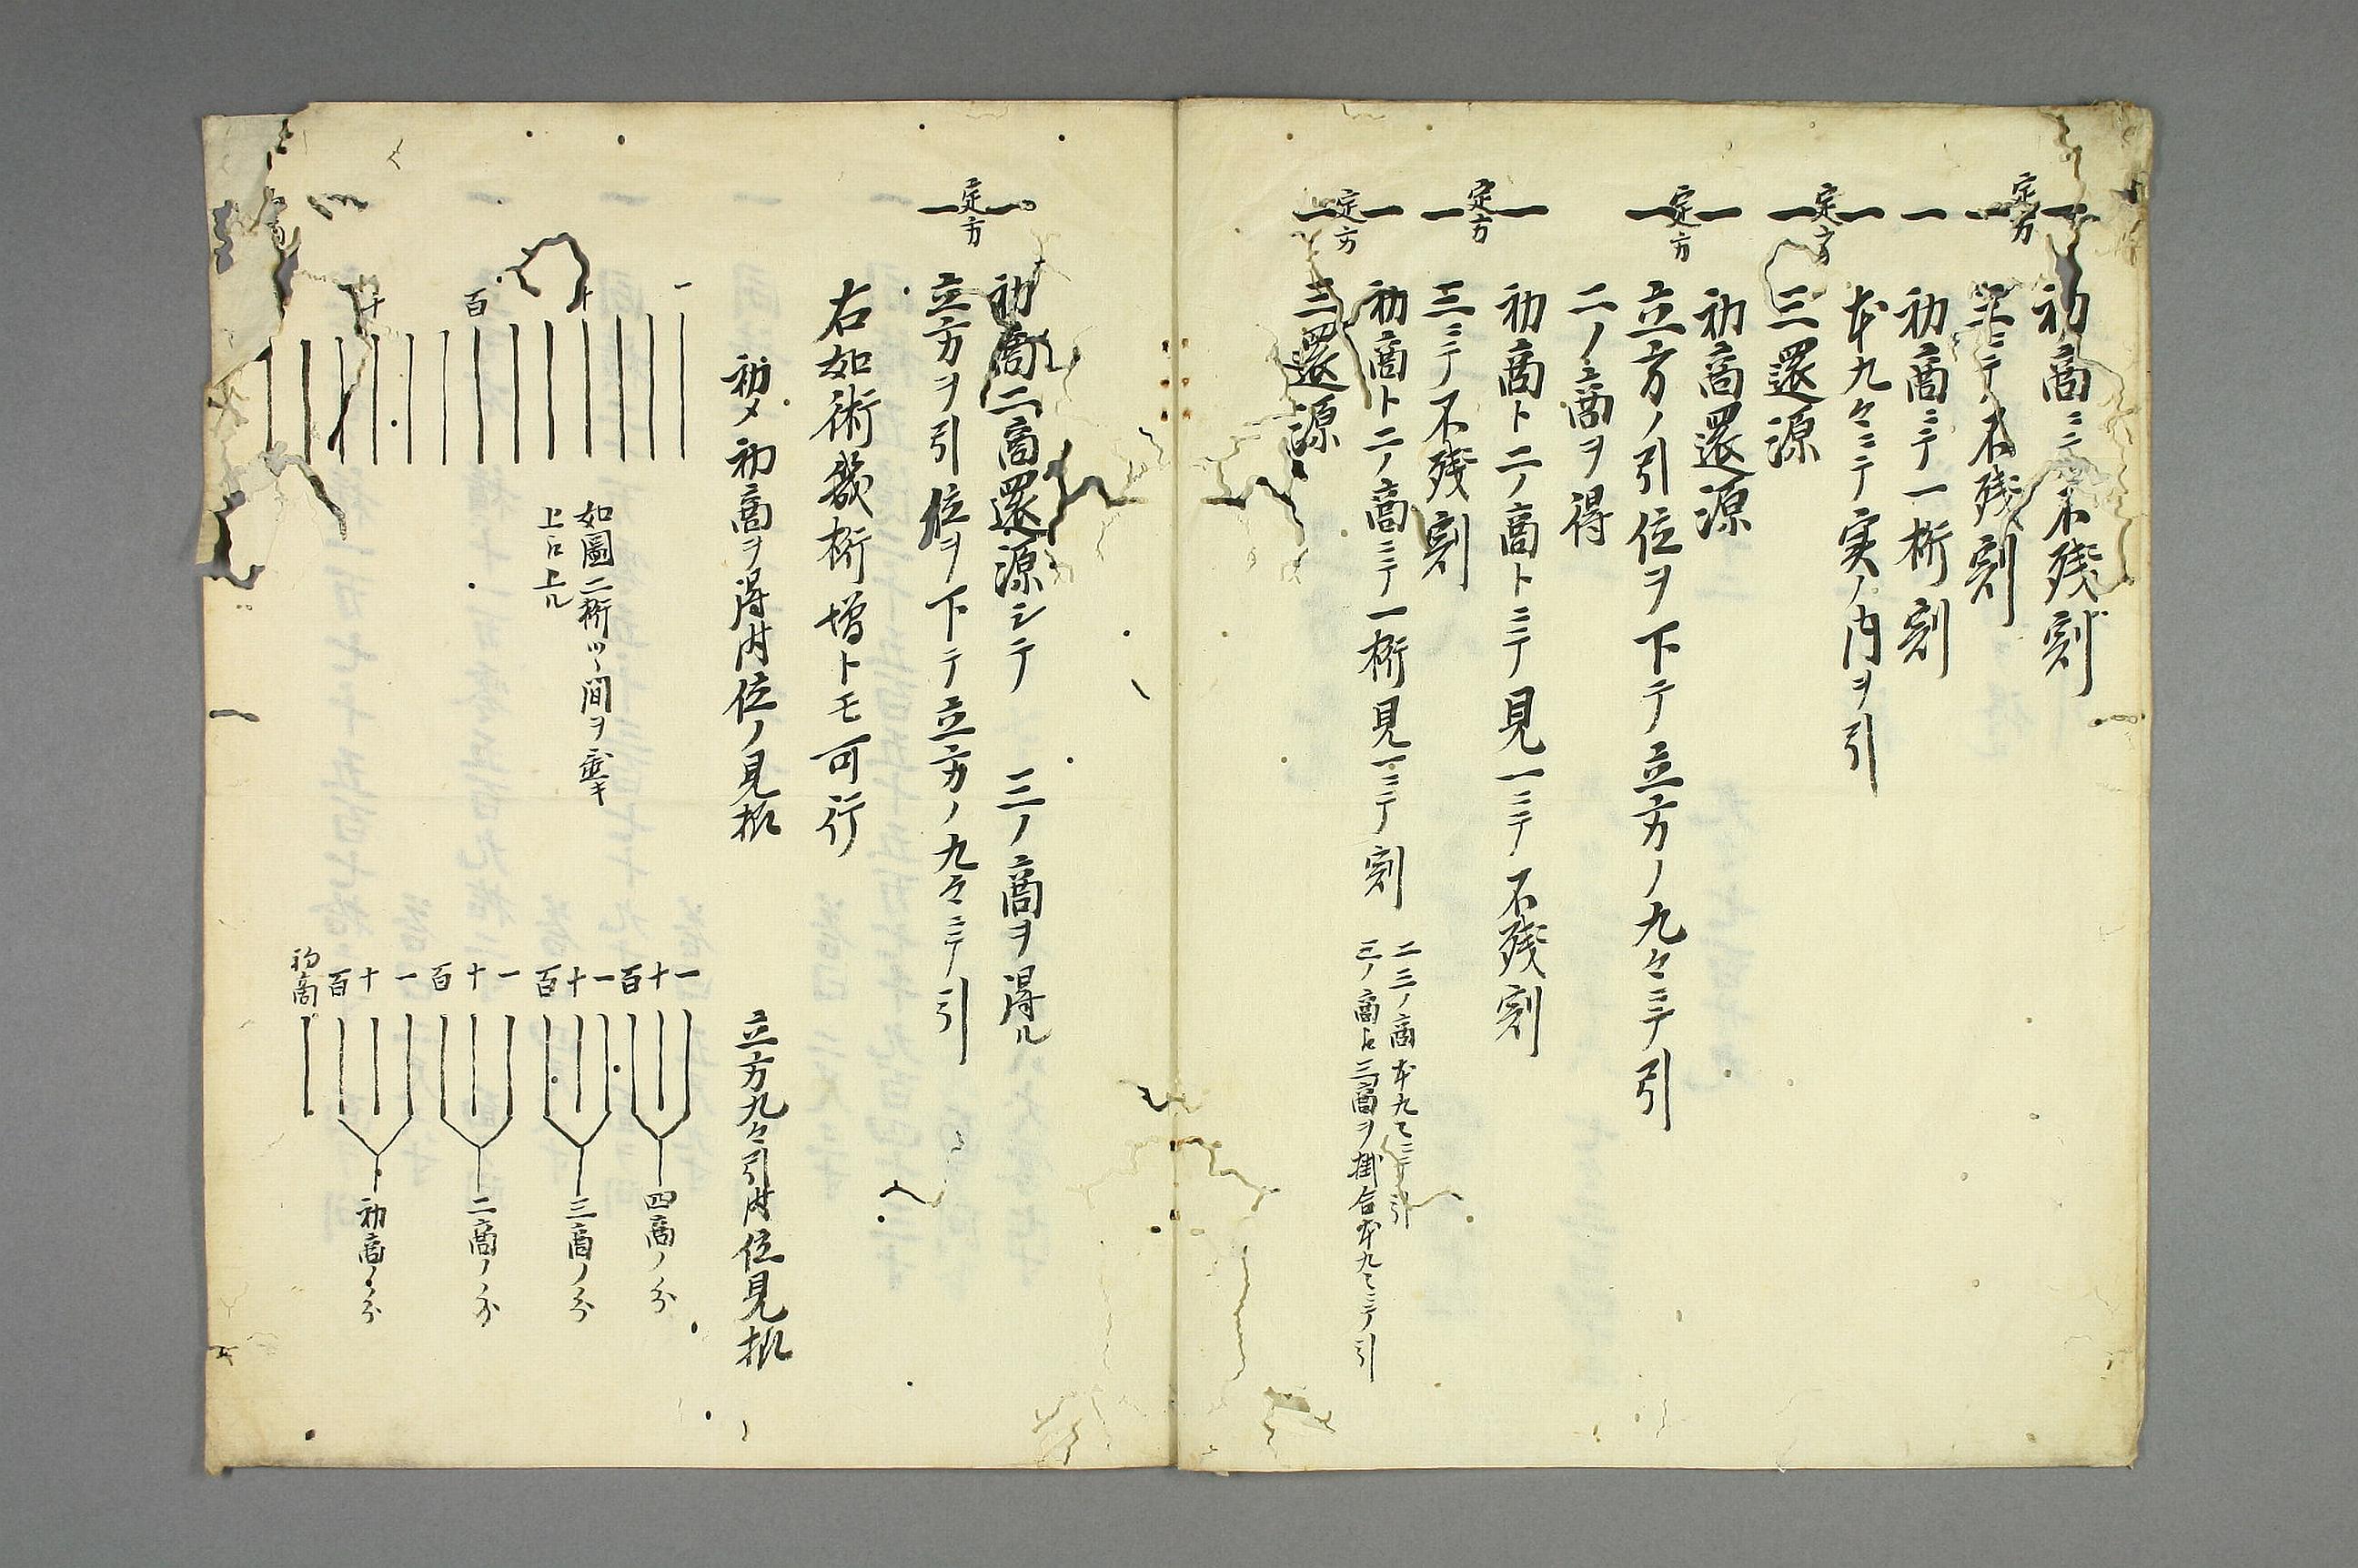 定方
一 初商ニテ不残割
一 三ニテ不残割
一 初商ニテ一桁割
一 本九々ニテ実ノ内ヲ引
定方
一 三還源
一 初商還源
定方
一 立方ノ引位ヲ下テ立方ノ九々ニテ引
二ノ商ヲ得
一 初商ト二ノ商トニテ見一ニテ不残割
定方
一 三ニテ不残割
一 初商ト二ノ商ニテ一桁見一ニテ割
二三ノ商本九々ニテ引
三ノ商ゟ三商ヲ掛合本九々ニテ引
定方
一 三還源
一 初商二商還源シテ 三ノ商ヲ得ル
定方
一 立方ヲ引位ヲ下テ立方ノ九々ニテ引
右如術幾桁増トモ可行
初メ初商ヲ得内位ノ見様
一
十
百
千
如圖二桁ツヽ間ヲ置キ
上ゟ上ル
立方九々引内位見様
一十百 四商ノ分
一十百 三商ノ分
一十百 二商ノ分
一十百 初商ノ分
初商